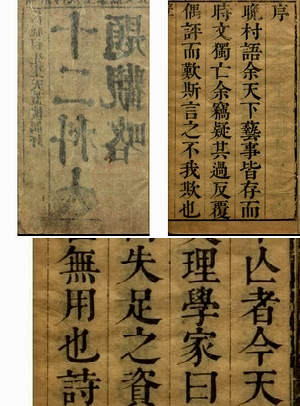 十二科小
題觀略
序
晚村語余天下藝事皆存而
時文獨亡余竊疑其過反覆
偶評而歎斯言之不我欺也
亾者今天
理學家曰
失足之資
無用也詩